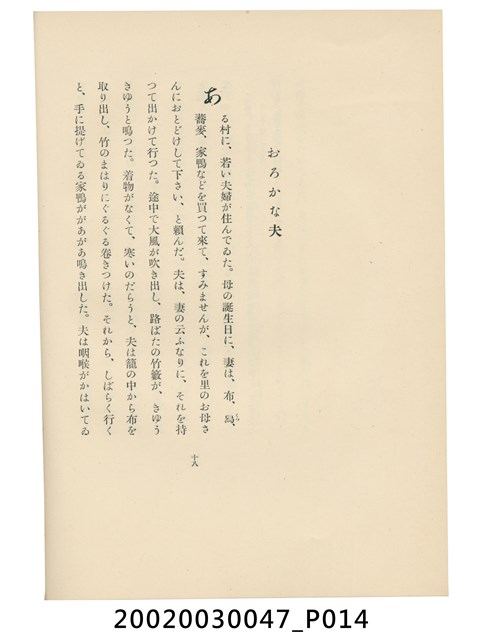 おろかな夫
ある村に、若い夫婦が住んでゐた。母の誕生日に、妻は、布、
蕎麥、家鴨などを買つて來て、すみませんが、これを里のお母さ
んにおとどけして下さい、と賴んだ。夫は、妻の云ふなりに、それを持
つて出かけて行つた。途中で大風が吹き出し、路ばたの竹籔が、きゆう
きゆうと鳴つた。着物がなくて、寒いのだらうと、夫は籠の中から布を
取り出し、竹のまはりにぐるぐる卷きつけた。それから、しばらく行く
と、手に提げてゐる家鴨ががあがあ鳴き出した。夫は咽喉がかはいてゐ
十八
20020030047_P014